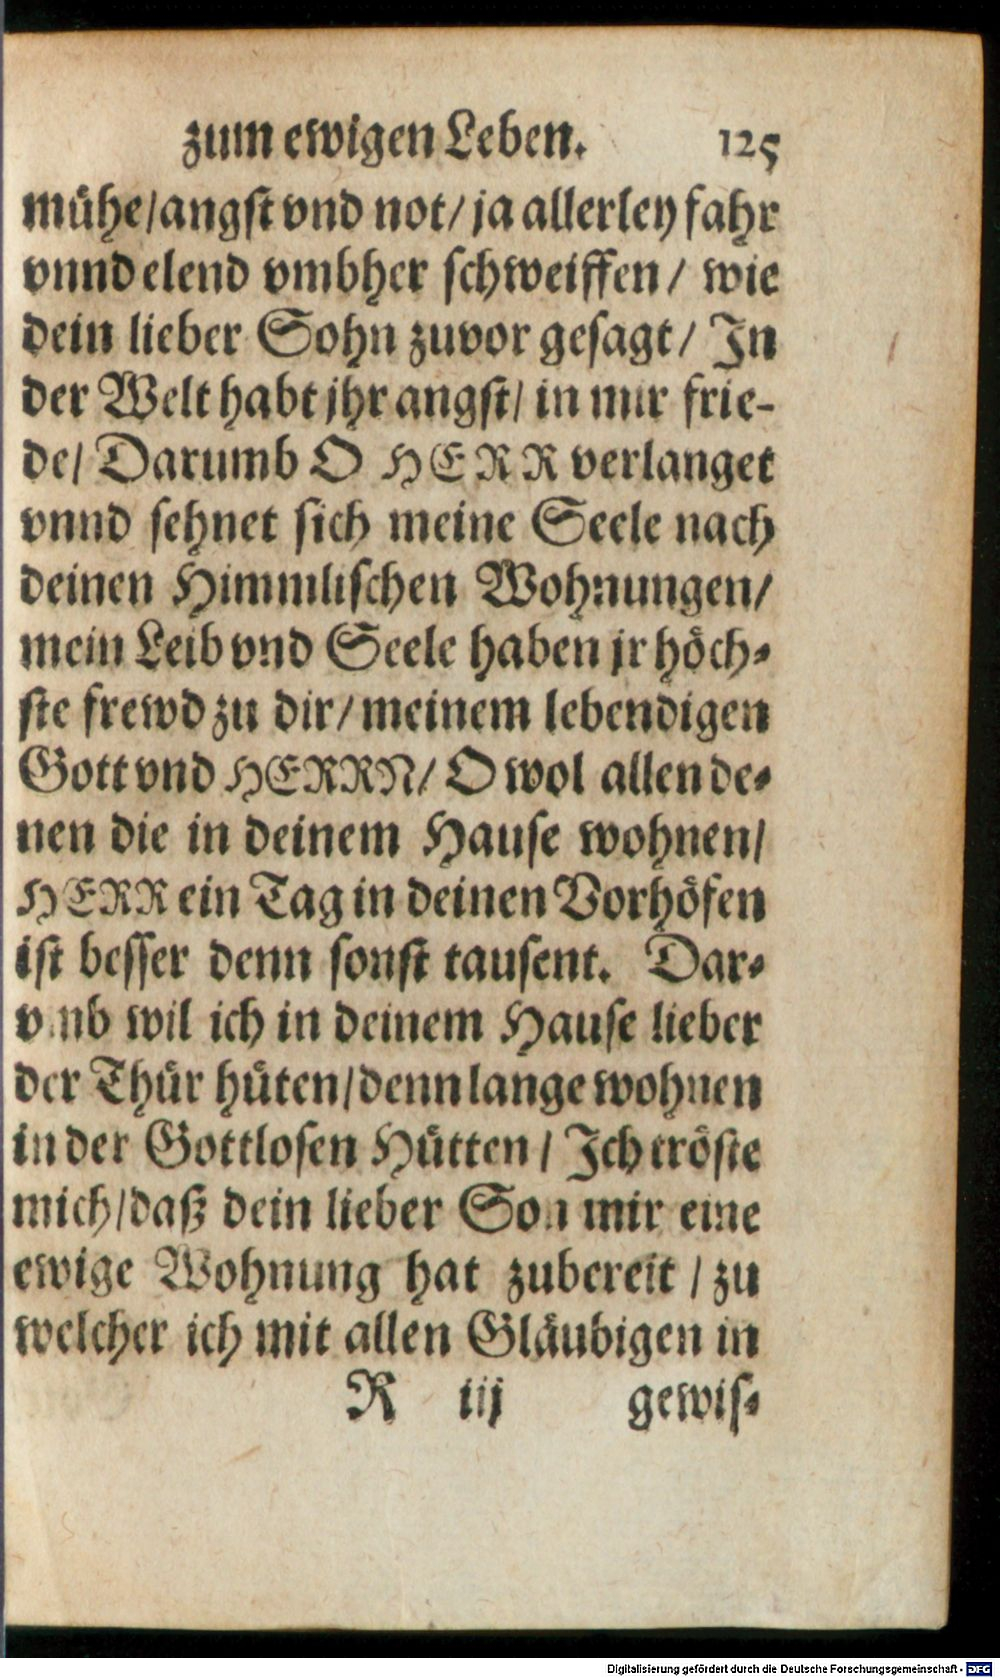 zum ewigen Leben. 125
mühe/angst vnd not/ ja allerley fahr
vnnd elend vmbher schweiffen/ wie
dein lieber Sohn zuvor gesagt/ In
der Welt habt jhr angst/ in mir frie-
de/ Darumb O HERR verlanget
vnnd sehnet sich meine Seele nach
deinen Himmlischen Wohnungen/
mein Leib vnd Seele haben jr höch-
ste frewd zu dir/ meinem lebendigen
Gott vnd HERRN/ O wol allen de-
nen die in deinem Hause wohnen/
HERR ein Tag in deinen Vorhöfen
ist besser denn sonst tausent. Dar-
vmb wil ich in deinem Hause lieber
der Thür hüten/denn lange wohnen
in der Gottlosen Hütten / Ich tröste
mich/daß dein lieber Son mir eine
ewige Wohnung hat zubereit / zu
welcher ich mit allen Gläubigen in
R iij gewis-
Digitalisierung gefördert durch die Deutsche Forschungsgemeinschaft - DFG